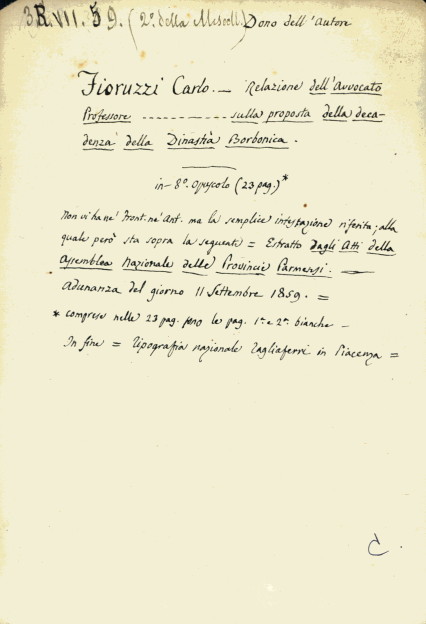 3R.VII.59. (2º della Miscell.) Dono dell'Autore
Fioruzzi Carlo. — Relazione dell'Avvocato
Professore ------------ sulla proposta della deca-
denza della Dinastia Borbonica.
in-8º. opuscolo (23 pag.)*
Non vi ha nè Front. nè Ant. ma la semplice intestazione riferita; alla
quale però sta sopra la seguente = Estratto dagli Atti della
Assemblea Nazionale delle Provincie Parmensi. —
Adunanza del giorno 11 Settembre 1859. =
* comprese nelle 23 pag. sono le pag. 1ª e 2ª bianche —
In fine = Tipografia nazionale Tagliaferri in Piacenza =
C.